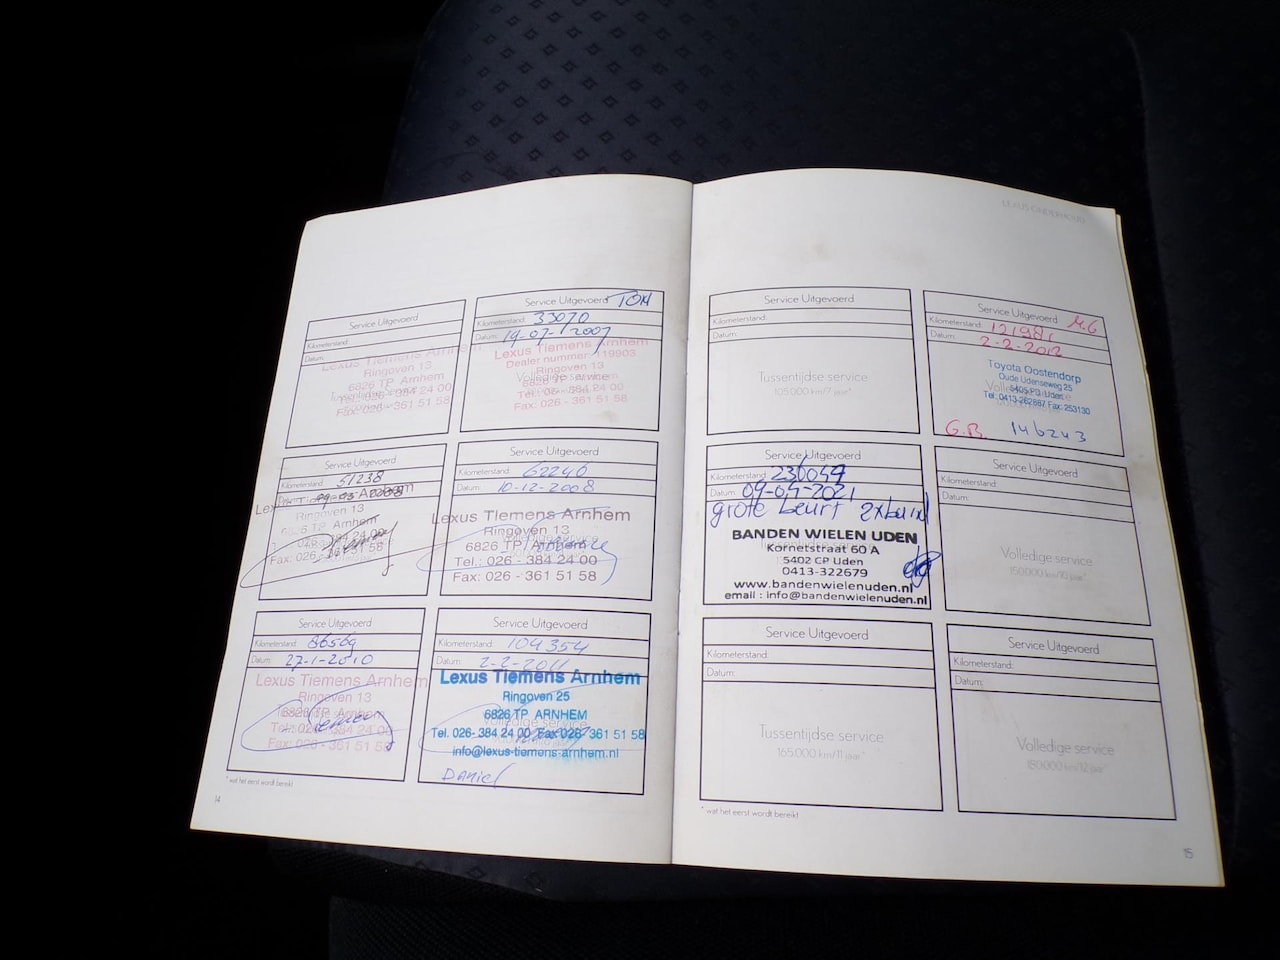 LEXUS ONDERHOUD
Service Uitgevoerd
Kilometerstand:
Datum:
Lexus Tiemens Arnhem
Ringoven 13
6826 TP Arnhem
Tel.: 026 - 384 24 00
Fax: 026 - 361 51 58
Service Uitgevoerd TOM
Kilometerstand: 33070
Datum: 19-07-2007
Lexus Tiemens Arnhem
Dealer nummer: 119903
Ringoven 13
6826 TP Arnhem
Tel.: 026 - 384 24 00
Fax: 026 - 361 51 58
Service Uitgevoerd
Kilometerstand: 51238
Datum:
Lexus Tiemens Arnhem
Ringoven 13
6826 TP Arnhem
Tel.: 026 - 384 24 00
Fax: 026 - 361 51 58
Service Uitgevoerd
Kilometerstand: 62246
Datum: 10-12-2008
Lexus Tiemens Arnhem
Ringoven 13
6826 TP Arnhem
Tel.: 026 - 384 24 00
Fax: 026 - 361 51 58
Service Uitgevoerd
Kilometerstand: 86569
Datum: 27-1-2010
Lexus Tiemens Arnhem
Ringoven 13
6826 TP Arnhem
Tel.: 026 - 384 24 00
Fax: 026 - 361 51 58
Service Uitgevoerd
Kilometerstand: 104354
Datum: 2-2-2011
Lexus Tiemens Arnhem
Ringoven 25
6826 TP ARNHEM
Volledige service
Tel. 026- 384 24 00 Fax 026- 361 51 58
info@lexus-tiemens-arnhem.nl
Daniel
* wat het eerst wordt bereikt
14
Service Uitgevoerd
Kilometerstand:
Datum:
Tussentijdse service
105.000 km/7 jaar*
Service Uitgevoerd M.G
Kilometerstand: 121981
Datum: 2-2-2012
Toyota Oostendorp
Oude Udenseweg 25
Volledige service
5405 PD Uden
Tel. 0413-262887 Fax: 253130
G.B. 146243
Service Uitgevoerd
Kilometerstand: 236049
Datum: 09-04-2021
grote beurt 2x
BANDEN WIELEN UDEN
Kornetstraat 60 A
5402 CP Uden
0413-322679
www.bandenwielenuden.nl
email : info@bandenwielenuden.nl
Service Uitgevoerd
Kilometerstand:
Datum:
Volledige service
150.000 km/10 jaar*
Service Uitgevoerd
Kilometerstand:
Datum:
Tussentijdse service
165.000 km/11 jaar*
Service Uitgevoerd
Kilometerstand:
Datum:
Volledige service
180.000 km/12 jaar*
* wat het eerst wordt bereikt
15